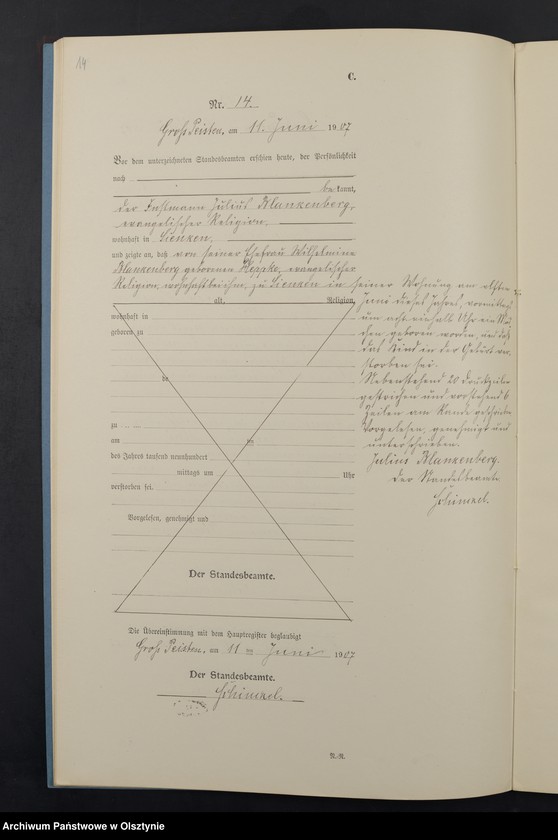 14
C.
Nr. 14.
Groß Peisten, am 11. Juni 1907
Vor dem unterzeichneten Standesbeamten erschien heute, der Persönlichkeit
nach
bekannt,
der Instmann Julius Blankenberg,
evangelischer Religion,
wohnhaft in Lienken,
und zeigte an, daß von seiner Ehefrau Wilhelmine
Blankenberg geborenen Heppke, evangelischer
Religion, wohnhaft bei ihm, zu Lienken in seiner Wohnung am elften
Juni dieses Jahres, vormittags
um acht einhalb Uhr ein Mäd
chen geboren worden, und daß
das Kind in der Geburt ver
storben sei.
Nebenstehend 20 Druckzeilen
gestrichen und vorstehend 6
Zeilen am Rande geschrieben
Vorgelesen, genehmigt und
unterschrieben.
Julius Blankenberg.
Der Standesbeamte
Schimkel.
alt, Religion,
wohnhaft in
geboren zu
de
zu
am im
des Jahres tausend neunhundert
mittags um Uhr
verstorben sei.
Vorgelesen, genehmigt und
Der Standesbeamte.
Die Übereinstimmung mit dem Hauptregister beglaubigt
Groß Peisten, am 11 ten Juni 1907
Der Standesbeamte.
Schimkel.
N.-R.
Archiwum Państwowe w Olsztynie